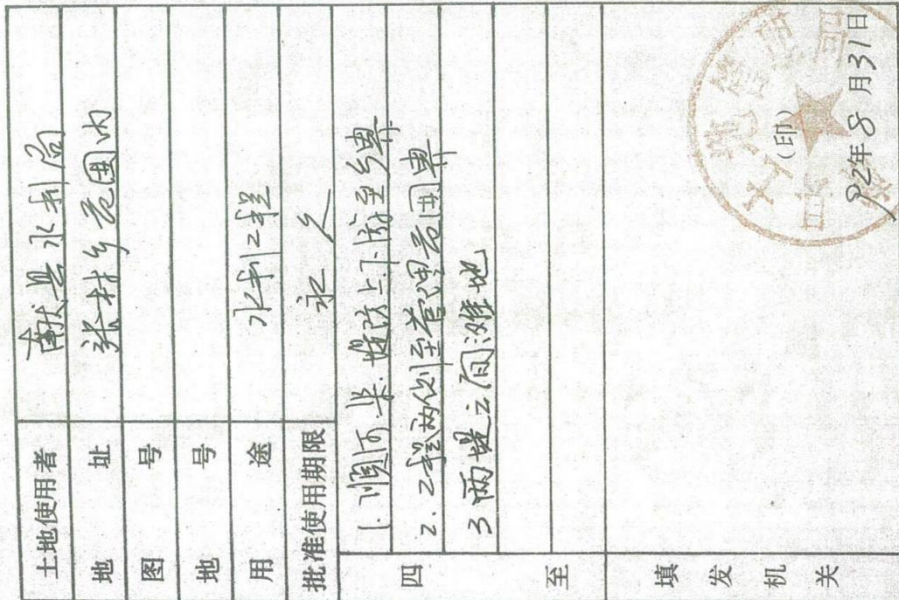 土地使用者 献县水利局
地址 张村乡范围内
图号
地号
用途 水利工程
批准使用期限 永久
四至
1. 顺河长堤防上下游至乡界
2 工程两侧至管理范围界
3 两堤之间滩地
填发机关
(印)
92年8月31日